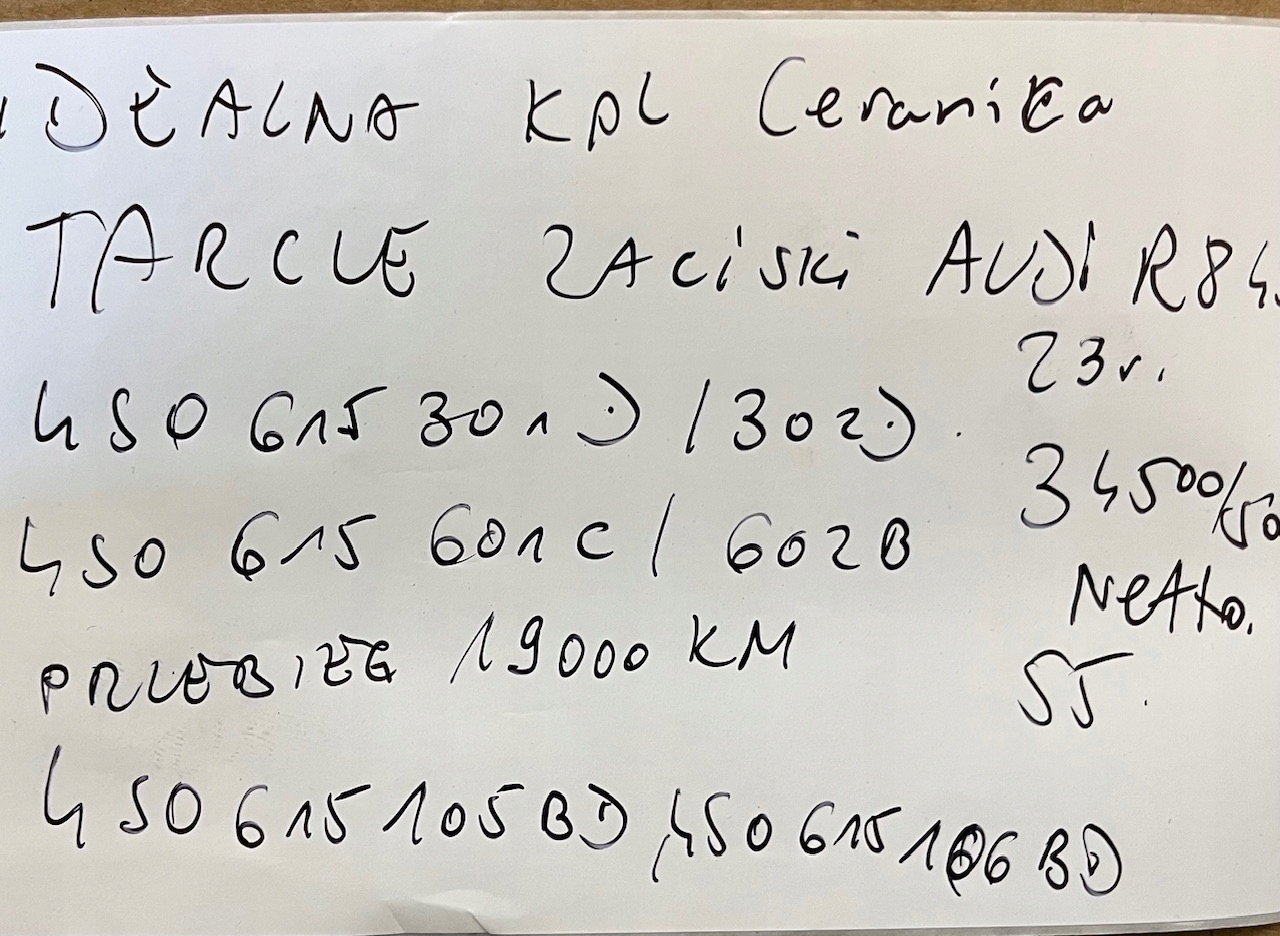 IDEALNA KPL Ceramika
TARCZE ZACISKI AUDI R8 4S
23r.
4S0 615 301 D / 302D.
34500/
4S0 615 601 C / 602B
Netto.
PRZEBIEG 19000 KM
4S0 615 105 BD, 4S0 615 106 BD